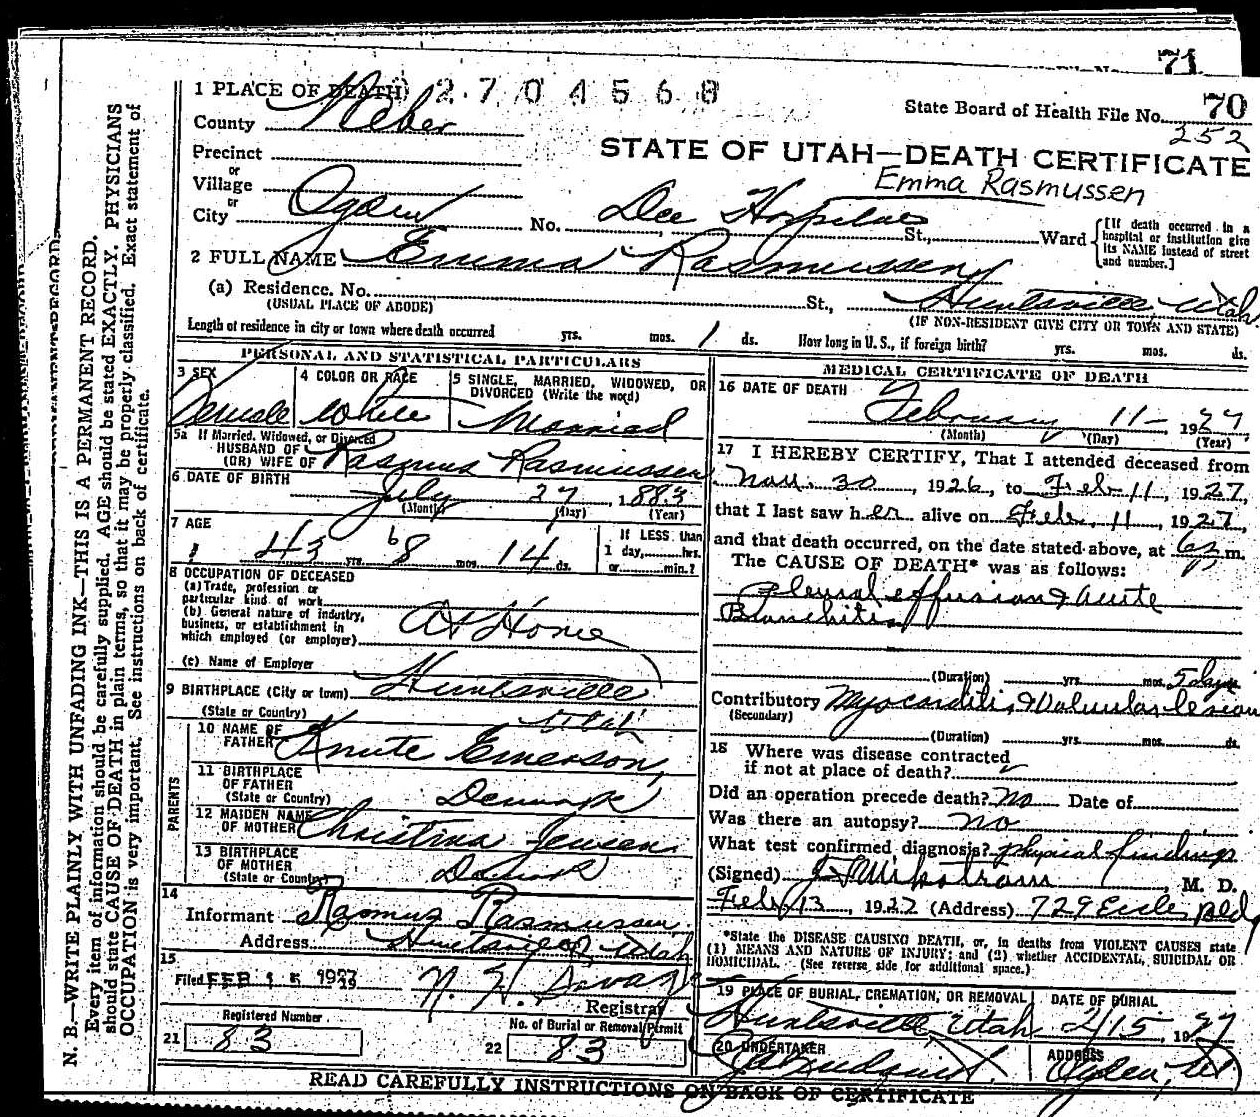 71
1 PLACE OF DEATH 2704568
State Board of Health File No. 70
252
County Weber
STATE OF UTAH—DEATH CERTIFICATE
Precinct
or
Emma Rasmussen
Village
or
City Ogden No. Dee Hospital St., Ward
[If death occurred in a hospital or institution give its NAME instead of street and number.]
2 FULL NAME Emma Rasmussen
(a) Residence. No. St., Huntsville, Utah
(USUAL PLACE OF ABODE) (IF NON-RESIDENT GIVE CITY OR TOWN AND STATE)
Length of residence in city or town where death occurred yrs. mos. 1 ds. How long in U. S., if foreign birth? yrs. mos. ds.
PERSONAL AND STATISTICAL PARTICULARS
3 SEX Female
4 COLOR OR RACE White
5 SINGLE, MARRIED, WIDOWED, OR DIVORCED (Write the word) Married
5a If Married, Widowed, or Divorced
HUSBAND OF
(OR) WIFE OF Rasmus Rasmussen
6 DATE OF BIRTH July 27 1883
(Month) (Day) (Year)
7 AGE 43 yrs. 6 mos. 14 ds.
If LESS than
1 day, hrs.
or min.?
8 OCCUPATION OF DECEASED
(a) Trade, profession or
particular kind of work
(b) General nature of industry,
business, or establishment in
which employed (or employer) At Home
(c) Name of Employer
9 BIRTHPLACE (City or town) Huntsville
(State or Country) Utah
PARENTS
10 NAME OF
FATHER Knute Emerson
11 BIRTHPLACE
OF FATHER
(State or Country) Denmark
12 MAIDEN NAME
OF MOTHER Christina Jensen
13 BIRTHPLACE
OF MOTHER
(State or Country)
14
Informant Rasmus Rasmussen
Address Huntsville, Utah
15
Filed FEB 15 1927
Registrar
Registered Number
21 83
No. of Burial or Removal Permit
22 83
MEDICAL CERTIFICATE OF DEATH
16 DATE OF DEATH February 11- 1927
(Month) (Day) (Year)
17 I HEREBY CERTIFY, That I attended deceased from
Nov. 30, 1926, to Feb 11, 1927,
that I last saw her alive on Feb. 11, 1927,
and that death occurred, on the date stated above, at m.
The CAUSE OF DEATH* was as follows:
Pleural effusion & acute
Bronchitis
(Duration) yrs. mos. 5 days
Contributory Myocarditis & Valvular lesion
(Secondary)
(Duration) yrs. mos. ds.
18 Where was disease contracted
if not at place of death?
Did an operation precede death? no Date of
Was there an autopsy? no
What test confirmed diagnosis? physical findings
(Signed) , M. D.
Feb 13, 1927 (Address) 729 Eccles Bldg
*State the DISEASE CAUSING DEATH, or, in deaths from VIOLENT CAUSES state
(1) MEANS AND NATURE OF INJURY; and (2) whether ACCIDENTAL, SUICIDAL OR
HOMICIDAL. (See reverse side for additional space.)
19 PLACE OF BURIAL, CREMATION, OR REMOVAL Huntsville, Utah
DATE OF BURIAL 2/15 1927
20 UNDERTAKER
ADDRESS Ogden, Ut
READ CAREFULLY INSTRUCTIONS ON BACK OF CERTIFICATE
N. B.—WRITE PLAINLY WITH UNFADING INK—THIS IS A PERMANENT RECORD.
Every item of information should be carefully supplied. AGE should be stated EXACTLY. PHYSICIANS
should state CAUSE OF DEATH in plain terms, so that it may be properly classified. Exact statement of
OCCUPATION is very important. See instructions on back of certificate.